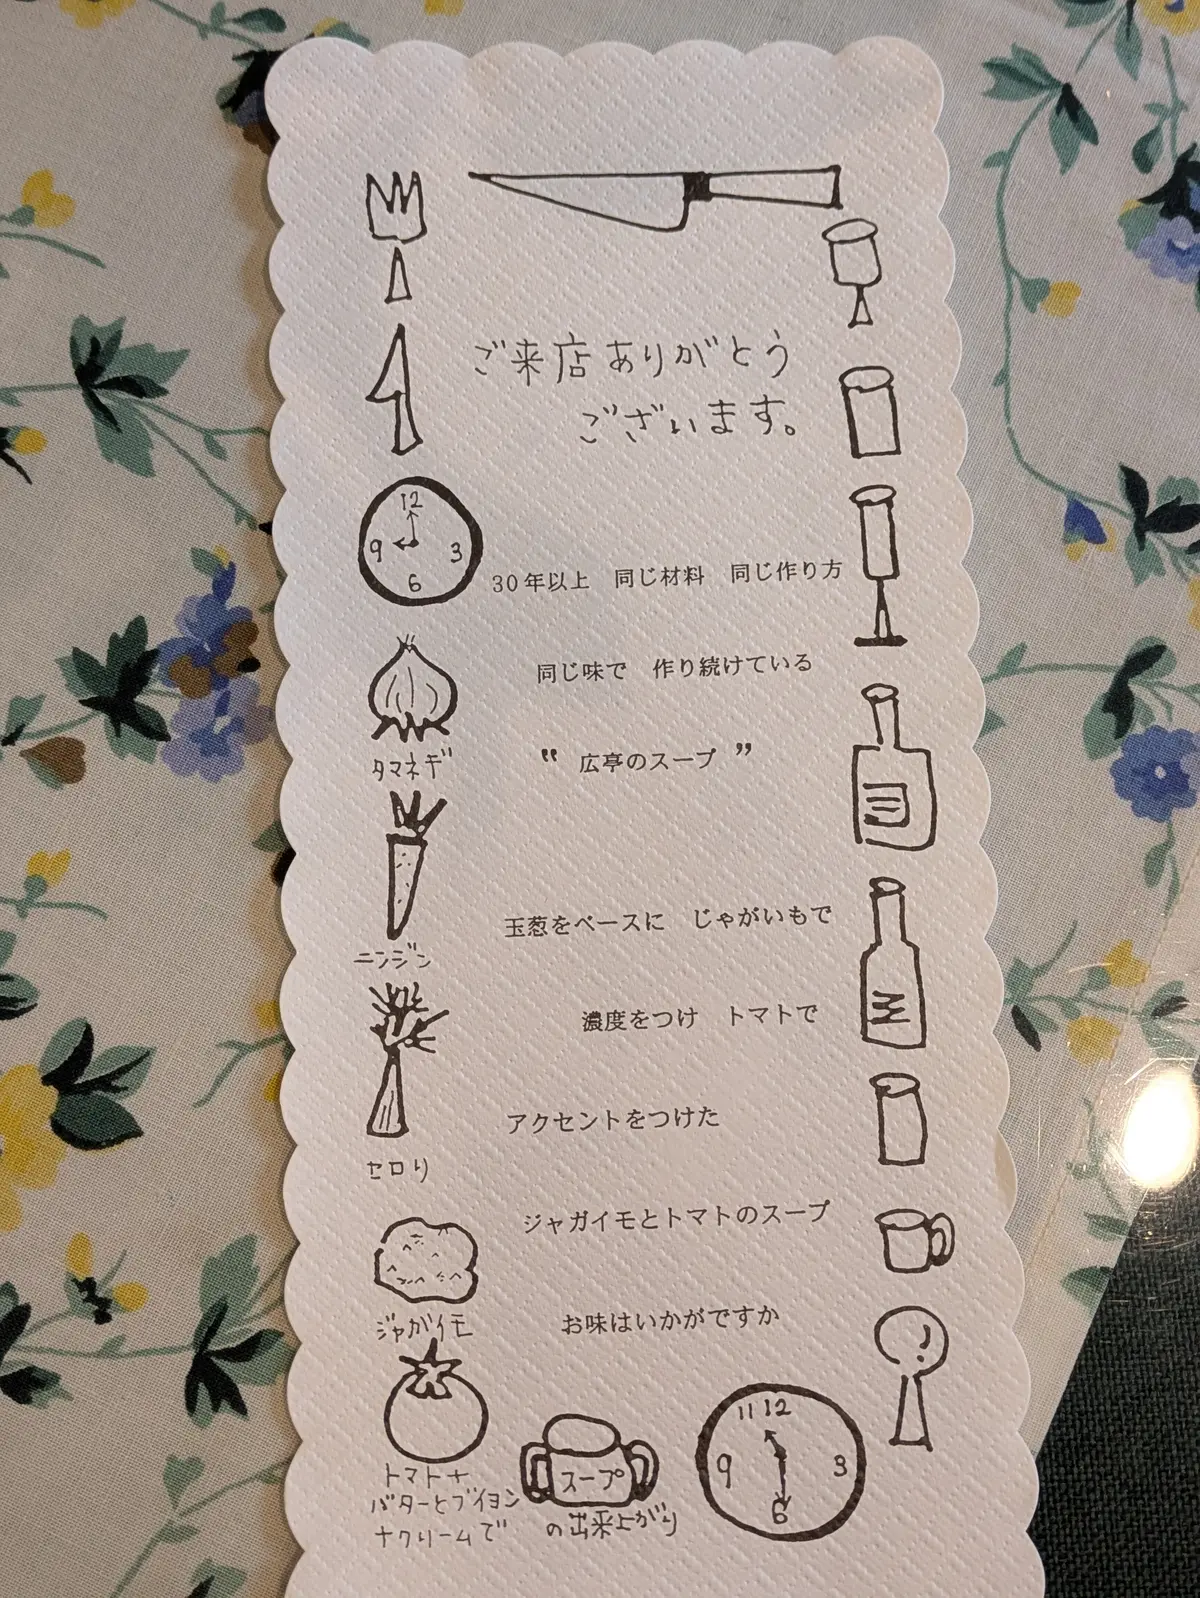 ご来店ありがとう
ございます。
12
9 3
6
30年以上 同じ材料 同じ作り方
同じ味で 作り続けている
タマネギ
" 広亭のスープ "
ニンジン
玉葱をベースに じゃがいもで
濃度をつけ トマトで
アクセントをつけた
セロリ
ジャガイモとトマトのスープ
ジャガイモ
お味はいかがですか
11 12
9 3
6
トマト+
バターとブイヨン
+クリームで
スープ
の出来上がり